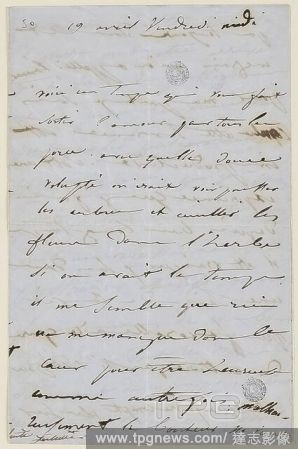 30
19 avril Vendredi midi
voici un temps qui vous fait
sortir l'amour par tous les
pores. avec quelle douce
volupté on irait voir pousser
les arbres et cueillir les
fleurs dans l'herbe
si on avait le temps
il me semble que rien
ne me manque dans le
cœur pour être heureux
comme autrefois malheu
reusement le bonheur
www.tpgnews.com / 達志影像